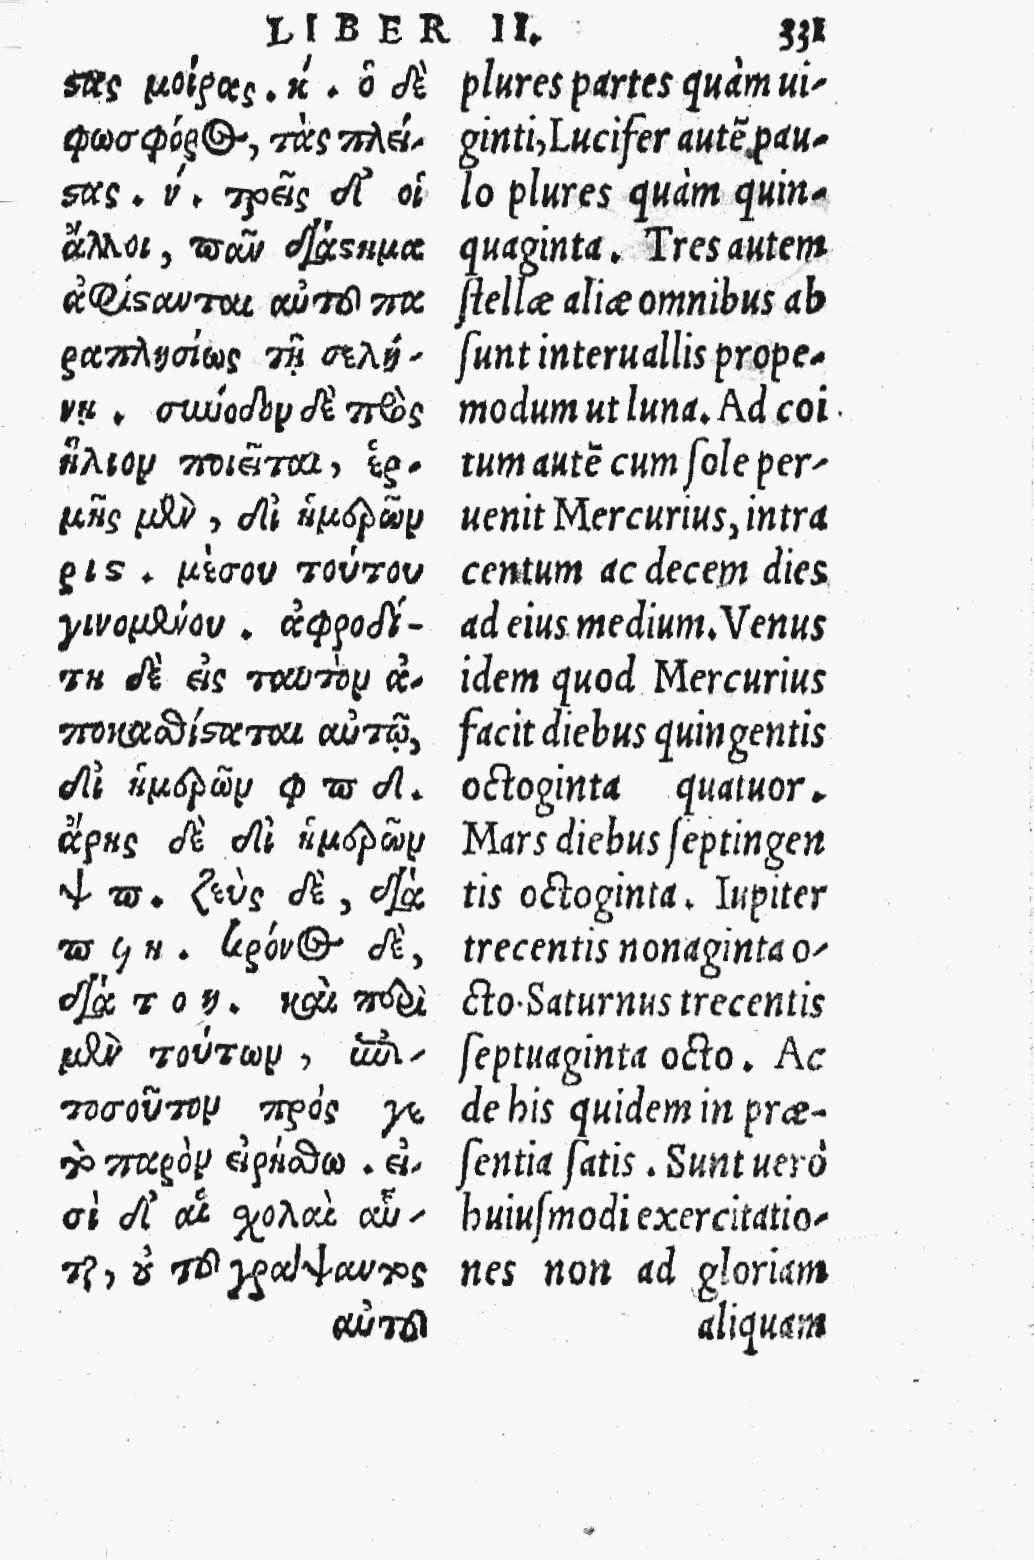 LIBER II. 331
στας μοίρας . κ΄ . ὁ δὲ
φωσφόρος, τὰς πλεί-
στας . ν΄ . τρεῖς δ’ οἱ
ἄλλοι, πᾶν διάστημα
ἀφίστανται αὐτοῦ πα
ραπλησίως τῇ σελή-
νῃ . σύνοδον δὲ πρὸς
ἥλιον ποιεῖται, ἑρ-
μῆς μὲν, δι’ ἡμερῶν
ρις . μέσου τούτου
γινομένου . ἀφροδί-
τη δὲ εἰς ταυτὸν ἀ-
ποκαθίσταται αὐτῷ,
δι’ ἡμερῶν φ π δ.
ἄρης δὲ δι’ ἡμερῶν
ψ π. ζεὺς δὲ, διὰ
π ϟ η . κρόνος δὲ,
διὰ τ ο η. καὶ περὶ
μὲν τούτων, ἐπι-
τοσοῦτον πρός γε
τὸ παρὸν εἰρήσθω . εἰ-
σὶ δ’ αἱ σχολαὶ αὗ-
ται, οὐ τοῦ γράψαντος
αὐτοῦ
plures partes quàm ui-
ginti, Lucifer autẽ pau-
lo plures quàm quin-
quaginta. Tres autem
ſtellæ aliæ omnibus ab
ſunt interuallis prope-
modum ut luna. Ad coi
tum autẽ cum ſole per-
uenit Mercurius, intra
centum ac decem dies
ad eius medium. Venus
idem quod Mercurius
facit diebus quingentis
octoginta quatuor.
Mars diebus ſeptingen
tis octoginta. Iupiter
trecentis nonaginta o-
cto. Saturnus trecentis
ſeptuaginta octo. Ac
de his quidem in præ-
ſentia ſatis. Sunt uerò
huiuſmodi exercitatio-
nes non ad gloriam
aliquam